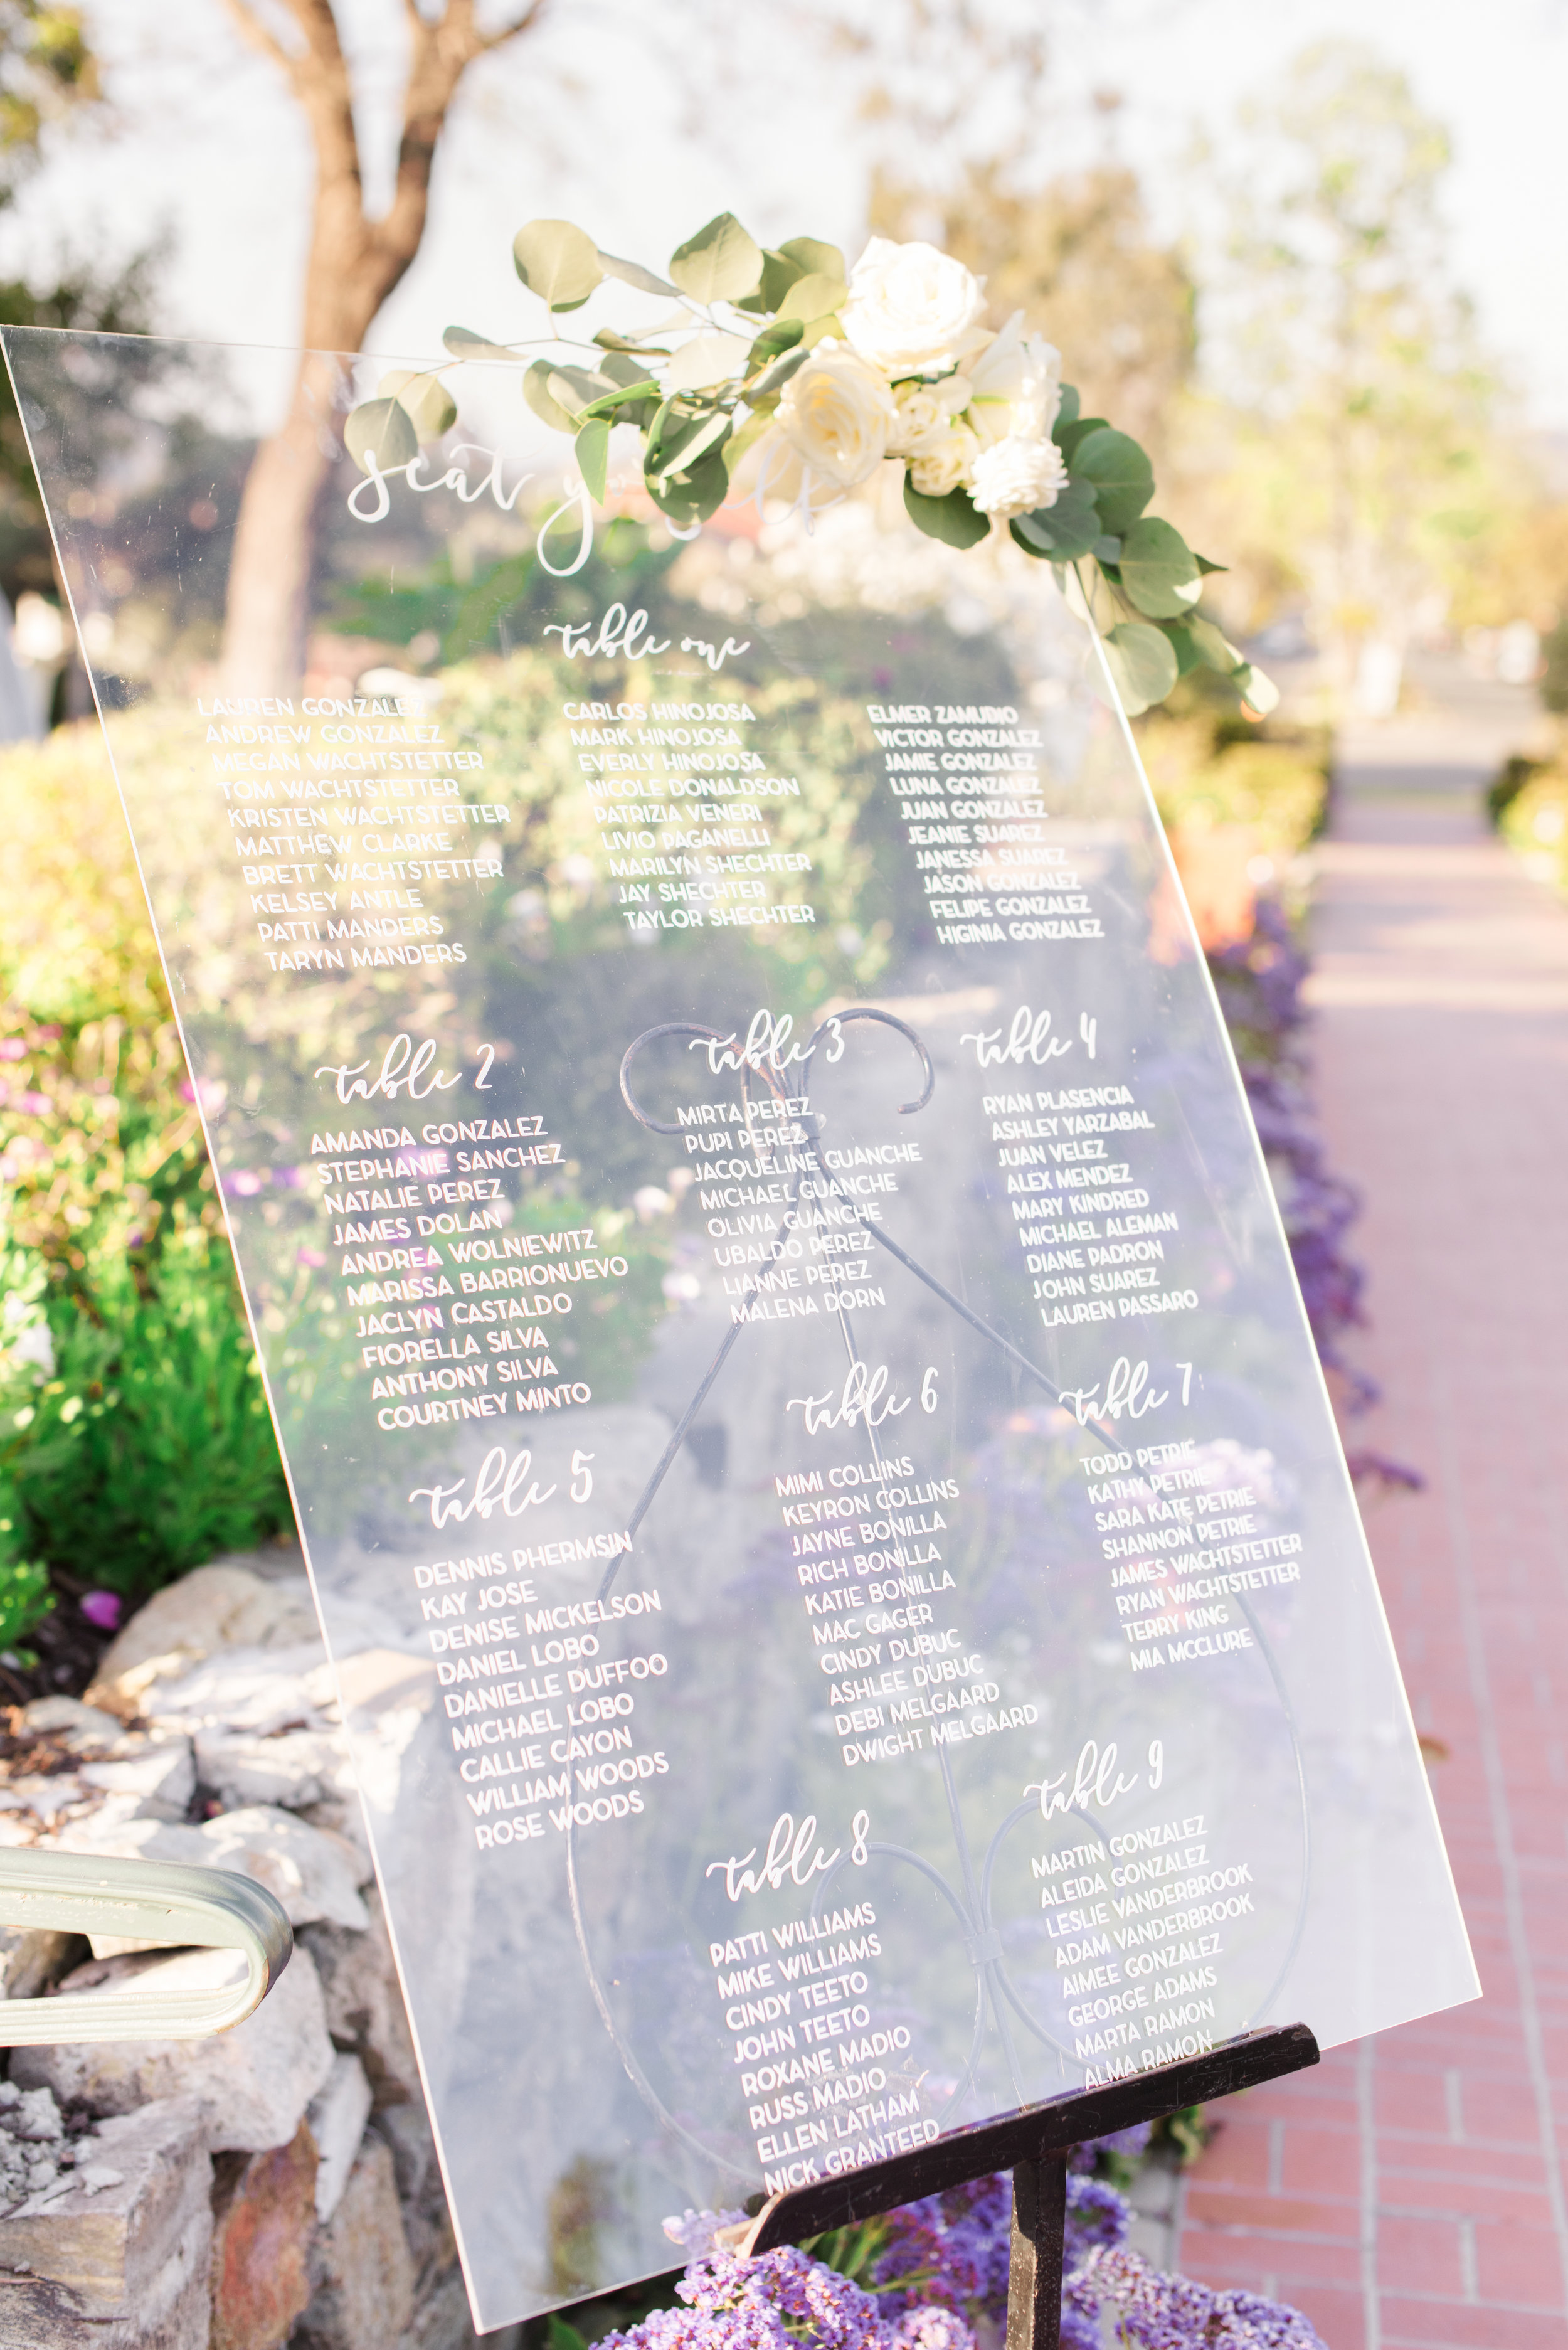 seat
table one
LAUREN GONZALEZ
ANDREW GONZALEZ
MEGAN WACHTSTETTER
TOM WACHTSTETTER
KRISTEN WACHTSTETTER
MATTHEW CLARKE
BRETT WACHTSTETTER
KELSEY ANTLE
PATTI MANDERS
TARYN MANDERS
CARLOS HINOJOSA
MARK HINOJOSA
EVERLY HINOJOSA
NICOLE DONALDSON
PATRIZIA VENERI
LIVIO PAGANELLI
MARILYN SHECHTER
JAY SHECHTER
TAYLOR SHECHTER
ELMER ZAMUDIO
VICTOR GONZALEZ
JAMIE GONZALEZ
LUNA GONZALEZ
JUAN GONZALEZ
JEANIE SUAREZ
JANESSA SUAREZ
JASON GONZALEZ
FELIPE GONZALEZ
HIGINIA GONZALEZ
table 2
AMANDA GONZALEZ
STEPHANIE SANCHEZ
NATALIE PEREZ
JAMES DOLAN
ANDREA WOLNIEWITZ
MARISSA BARRIONUEVO
JACLYN CASTALDO
FIORELLA SILVA
ANTHONY SILVA
COURTNEY MINTO
table 3
MIRTA PEREZ
PUPI PEREZ
JACQUELINE GUANCHE
MICHAEL GUANCHE
OLIVIA GUANCHE
UBALDO PEREZ
LIANNE PEREZ
MALENA DORN
table 4
RYAN PLASENCIA
ASHLEY YARZABAL
JUAN VELEZ
ALEX MENDEZ
MARY KINDRED
MICHAEL ALEMAN
DIANE PADRON
JOHN SUAREZ
LAUREN PASSARO
table 5
DENNIS PHERMSIN
KAY JOSE
DENISE MICKELSON
DANIEL LOBO
DANIELLE DUFFOO
MICHAEL LOBO
CALLIE CAYON
WILLIAM WOODS
ROSE WOODS
table 6
MIMI COLLINS
KEYRON COLLINS
JAYNE BONILLA
RICH BONILLA
KATIE BONILLA
MAC GAGER
CINDY DUBUC
ASHLEE DUBUC
DEBI MELGAARD
DWIGHT MELGAARD
table 7
TODD PETRIE
KATHY PETRIE
SARA KATE PETRIE
SHANNON PETRIE
JAMES WACHTSTETTER
RYAN WACHTSTETTER
TERRY KING
MIA MCCLURE
table 8
PATTI WILLIAMS
MIKE WILLIAMS
CINDY TEETO
JOHN TEETO
ROXANE MADIO
RUSS MADIO
ELLEN LATHAM
NICK GRANTEED
table 9
MARTIN GONZALEZ
ALEIDA GONZALEZ
LESLIE VANDERBROOK
ADAM VANDERBROOK
AIMEE GONZALEZ
GEORGE ADAMS
MARTA RAMON
ALMA RAMON